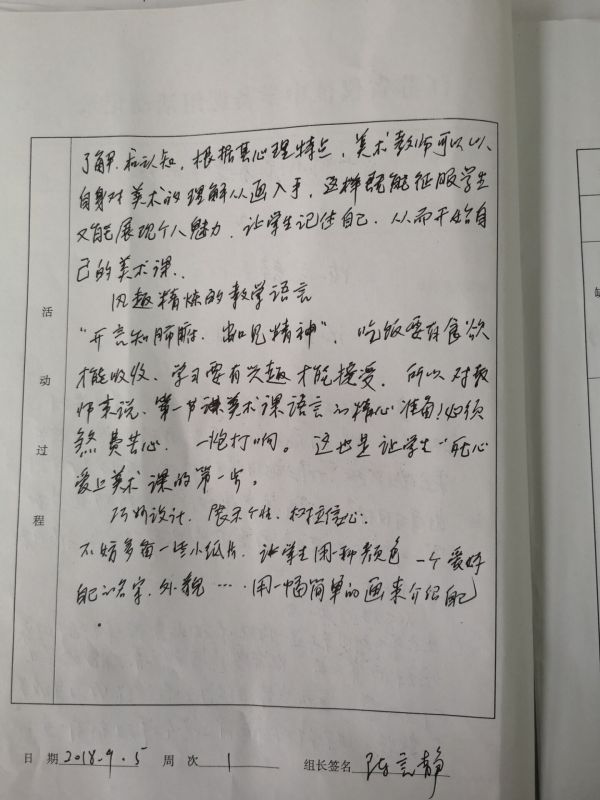 了解和认知,根据其心理特点,美术教师可以以
自身对美术的理解从画入手,这样既能征服学生
又能展现个人魅力,让学生记住自己,从而开始自
己的美术课.
风趣精炼的教学语言
"开言知肺腑,出口见精神",吃饭要有食欲
才能吸收、学习要有兴趣才能接受,所以对教
师来说,第一节课美术课语言的精心准备!必须
煞费苦心,一炮打响。这也是让学生"死心
爱上美术课的第一步。
巧妙设计,展示个性,树立信心.
不妨多备一些小纸片,让学生用一种颜色 一个爱好
自己的名字,外貌……用一幅简单的画来介绍自己
。
活动过程
日期 2018.9.5 周次 1 组长签名